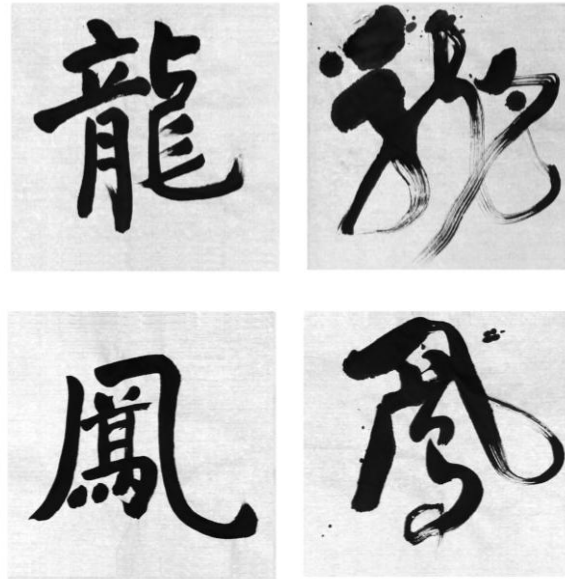 龍 龍
鳳 鳳